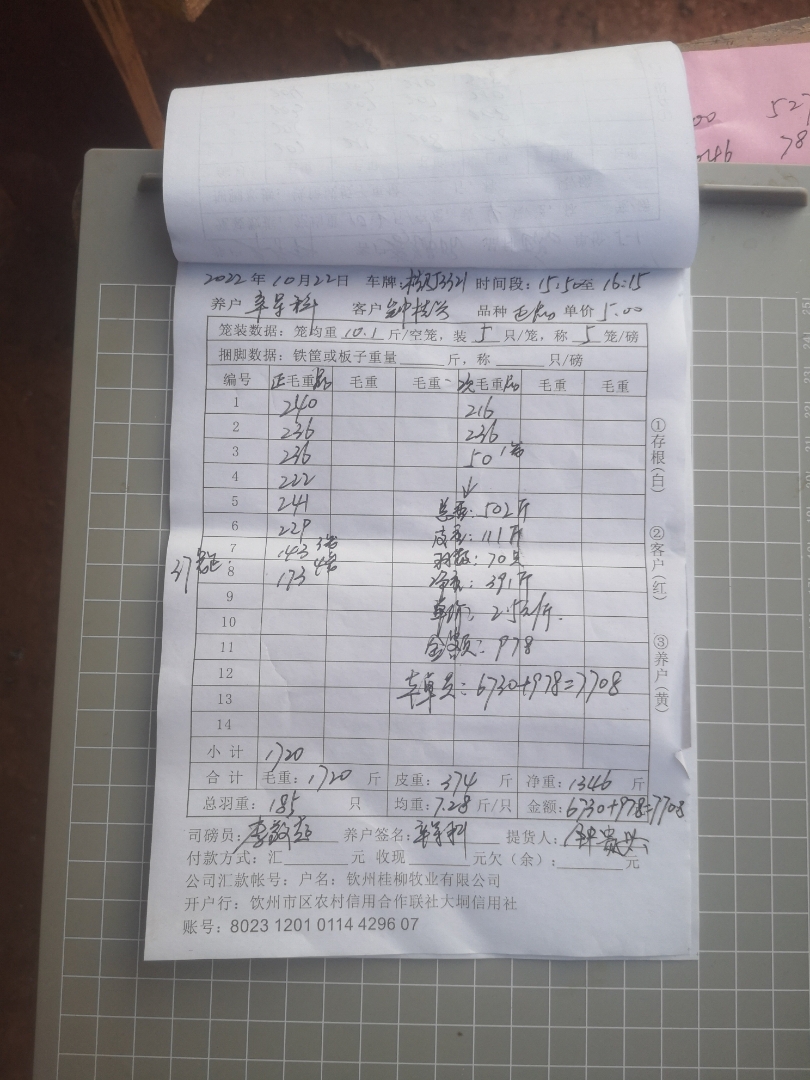 00 527
1346 78
2022年10月22日 车牌: 时间段:15:50至16:15
养户 客户 品种 单价 5.00
笼装数据:笼均重10.1斤/空笼,装5只/笼,称5笼/磅
捆脚数据:铁筐或板子重量 斤,称 只/磅
编号 正毛重品 毛重 毛重 次毛重品 毛重 毛重
1 240 216
2 236 236
3 236 50 1笼
4 222 ↓
5 241 总重:502斤
6 229 皮重:111斤
7 143 3笼 羽数:70只
37笼 8 173 4笼 净重:391斤
9 单价:2.5元/斤.
10
11 金额:978
12 6730+978=7708
13
14
小计 1720
合计 毛重:1720斤 皮重:374斤 净重:1346斤
总羽重:185只 均重:7.28斤/只 金额:6730+978=7708
司磅员: 养户签名: 提货人:
付款方式:汇 元 收现 元欠(余): 元
公司汇款帐号:户名:钦州桂柳牧业有限公司
开户行:钦州市区农村信用合作联社大垌信用社
账号:8023 1201 0114 4296 07
①存根(白)
②客户(红)
③养户(黄)